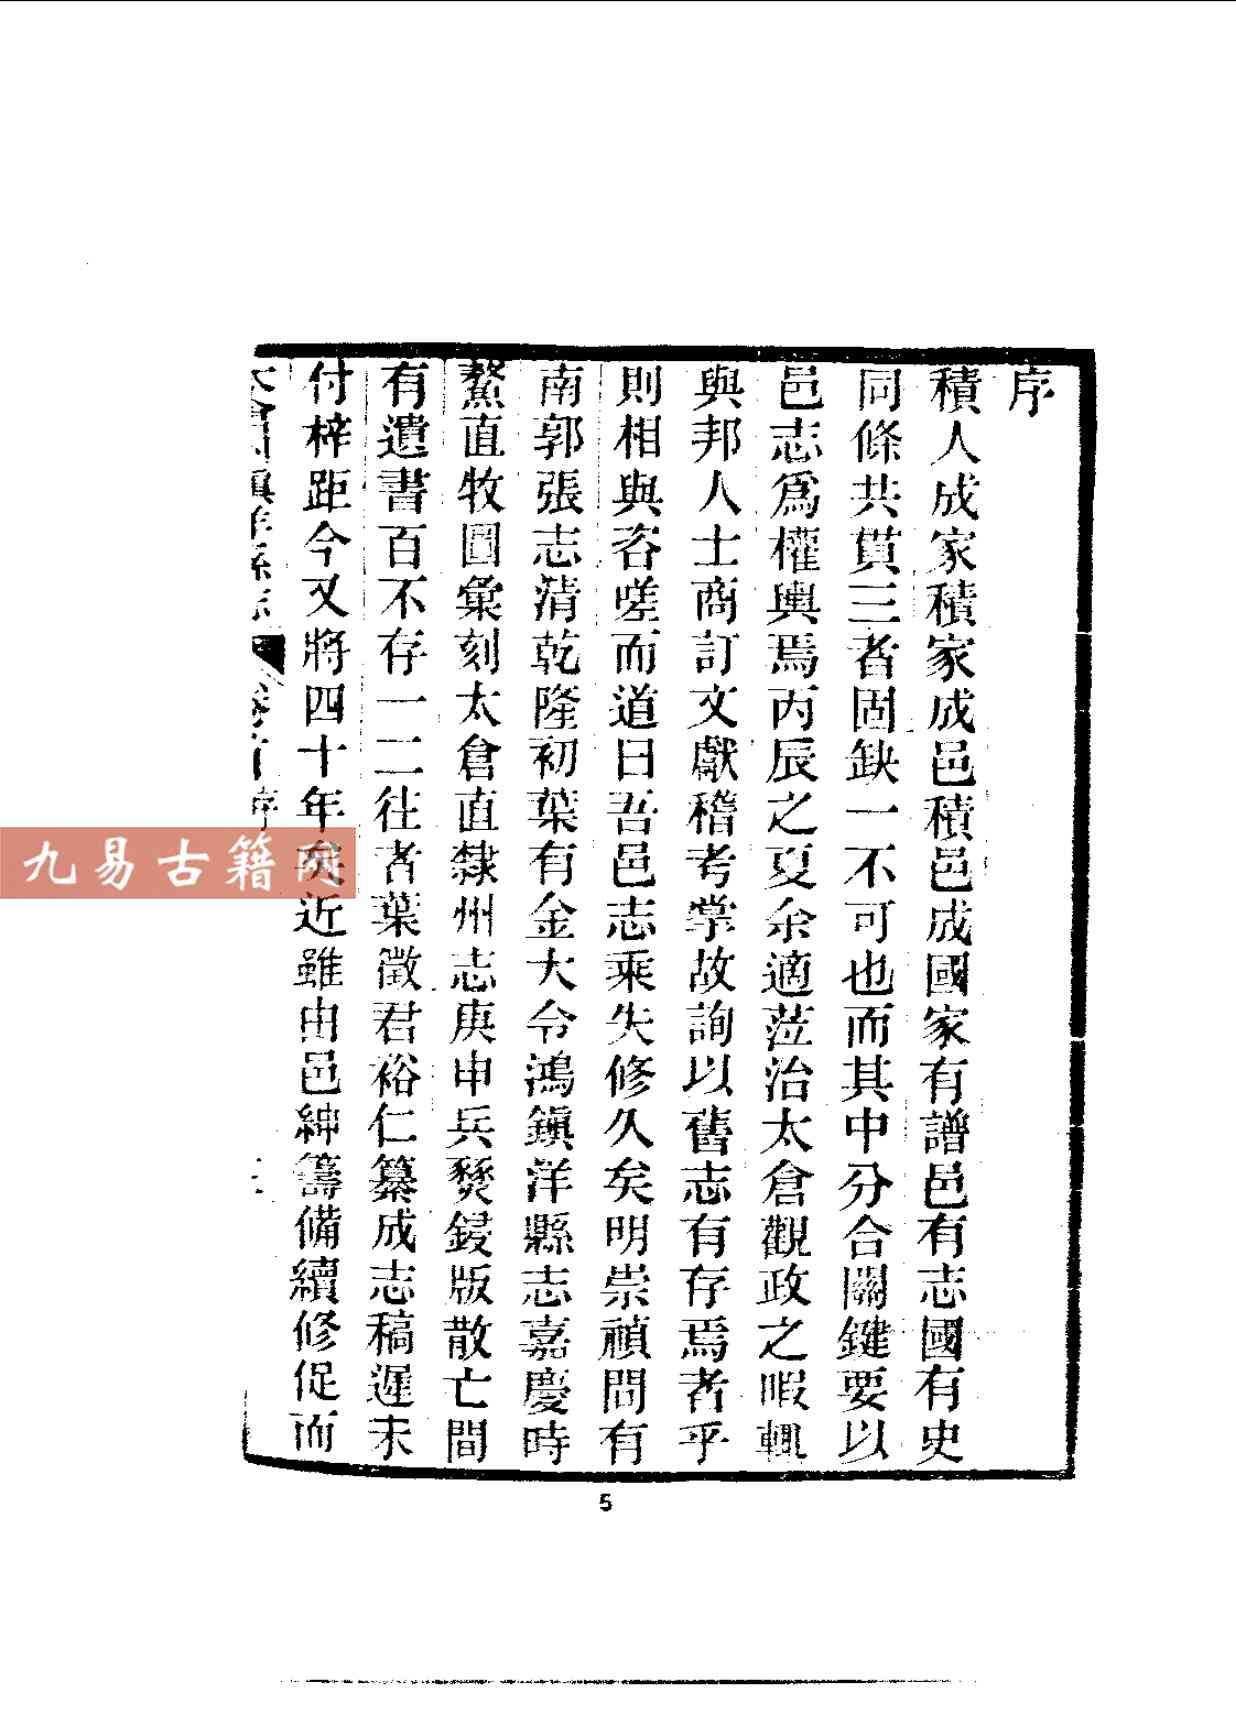 序
積人成家積家成邑積邑成國家有譜邑有志國有史
同條共貫三者固缺一不可也而其中分合關鍵要以
邑志爲權輿焉丙辰之夏余適蒞治太倉觀政之暇輒
與邦人士商訂文獻稽考掌故詢以舊志有存焉者乎
則相與咨嗟而道曰吾邑志乘失修久矣明崇禎間有
南郭張志清乾隆初葉有金大令鴻鎮洋縣志嘉慶時
鰲直牧圖彙刻太倉直隸州志庚申兵燹鋟版散亡間
有遺書百不存一二往者葉徵君裕仁纂成志稿遲未
付梓距今又將四十年矣近雖由邑紳籌備續修促而
鎮洋縣志 卷首 序
九易古籍网
5